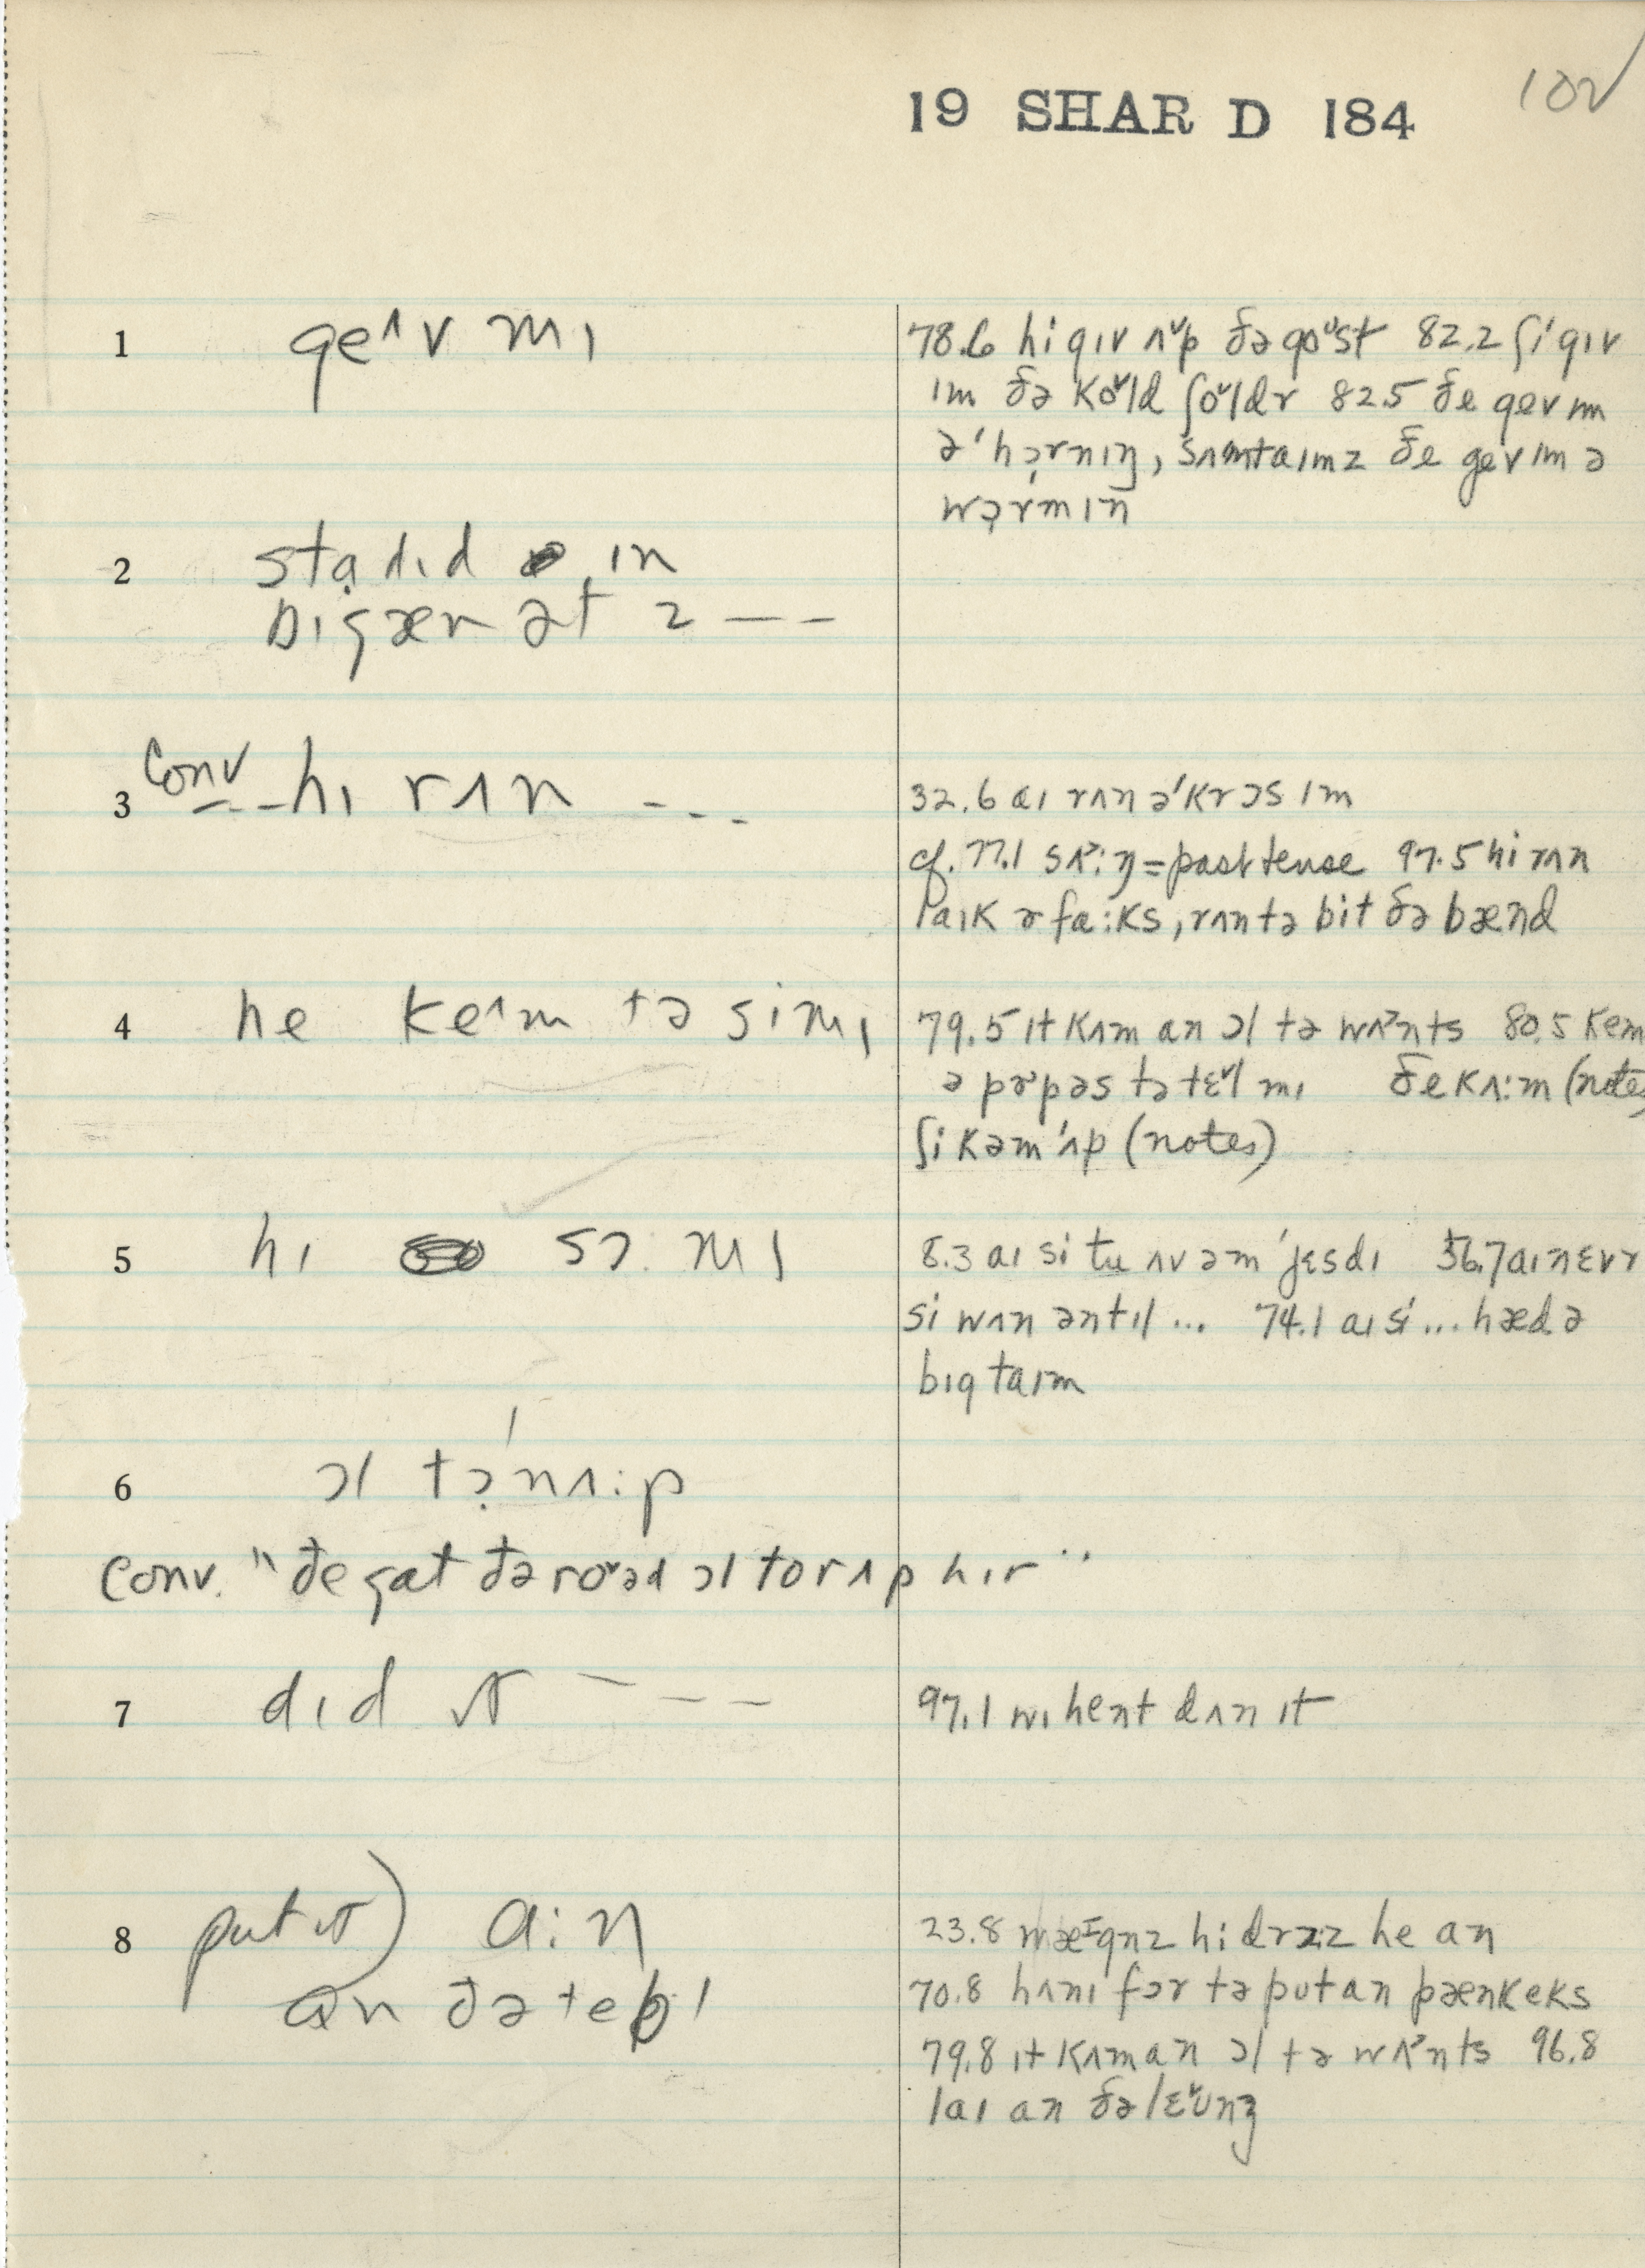 19 SHAR D 184
102
1 geʌv mɪ
78.6 hi gɪv ʌᵛp ðə goᵘst 82.2 ʃi gɪv
ɪm ðə koᵛld ʃoᵛldr 82.5 ðe gev ɪm
ə'hɔ̣rnɪŋ, sʌmtaɪmz ðe gev ɪm ə
wɔ̣rmɪn
2 stạdɪd ɪn
bɪgæn ət 2 – –
3 Conv – – hɪ rʌn – – –
32.6 aɪ rʌn ə'krɔs ɪm
cf. 77.1 sʌᵊ:ŋ = past tense 97.5 hi rʌn
laɪk ə fa:ks, rʌn tə bit ðə bænd
4 he keʌm tə si mɪ
79.5 ɪt kʌm an ɔl tə wʌᵊnts 80.5 kem
ə pɚpəs tə tɛᵛl mɪ ðe kʌ:m (notes
ʃi kəm'ʌp (notes)
5 hɪ sɔ: mɪ
8.3 aɪ si tu ʌv əm 'jɛsdɪ 56.7 aɪ nɛvr
si wʌn əntɪl ... 74.1 aɪ si ... hæd ə
bɪg taɪm
6 ɔl tɔ̣'nʌ:p
Conv. "ðe gat ðə roᵛəd ɔl tor ʌp hɪr"
7 dɪd it – – –
97.1 wɪ hent dʌn ɪt
8 put it) a:n
an ðə tebl
23.8 hi he an
70.8 hʌnɪ fɔr tə put an pænkeks
79.8 ɪt kʌm an ɔl tə wʌᵊnts 96.8
laɪ an ðə